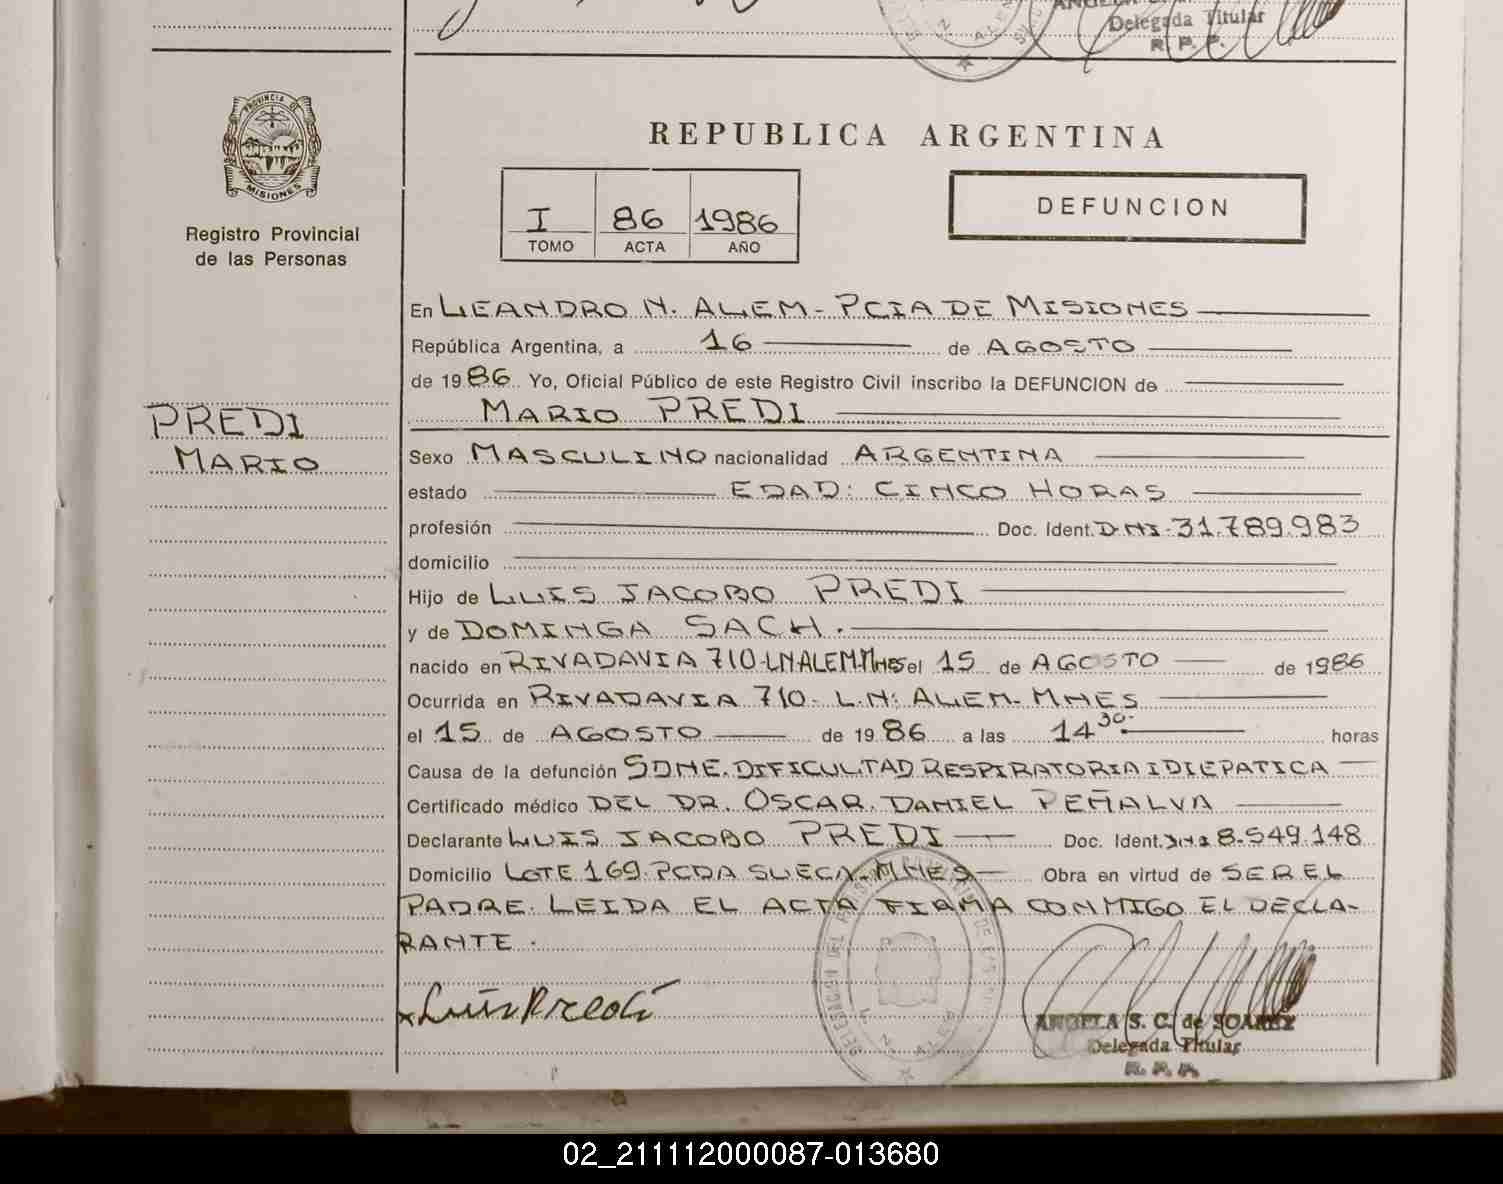 Delegada Titular
R. P. P.
PROVINCIA DE
MISIONES
Registro Provincial
de las Personas
REPUBLICA ARGENTINA
I 86 1986
TOMO ACTA AÑO
DEFUNCION
En LEANDRO N. ALEM - PCIA DE MISIONES
República Argentina, a 16 de AGOSTO
de 1986 Yo, Oficial Público de este Registro Civil inscribo la DEFUNCION de
MARIO PREDI
PREDI
MARIO
Sexo MASCULINO nacionalidad ARGENTINA
estado EDAD: CINCO HORAS
profesión Doc. Ident. DNI-31.789.983
domicilio
Hijo de LUIS JACOBO PREDI
y de DOMINGA SACH.
nacido en RIVADAVIA 710-LN ALEM.Mnes el 15 de AGOSTO de 1986
Ocurrida en RIVADAVIA 710- L.N: ALEM- MNES
el 15 de AGOSTO de 1986 a las 14 30- horas
Causa de la defunción SDME. DIFICULTAD RESPIRATORIA IDIEPATICA
Certificado médico DEL DR. OSCAR DANIEL PEÑALVA
Declarante LUIS JACOBO PREDI Doc. Ident. DNI 8.549.148
Domicilio LOTE 169. PCDA SUECA-MNES Obra en virtud de SER EL
PADRE. LEIDA EL ACTA FIRMA CONMIGO EL DECLA-
RANTE.
x Luis Predi
ANGELA S. C. de SOAREZ
Delegada Titular
R. P. P.
02_211112000087-013680